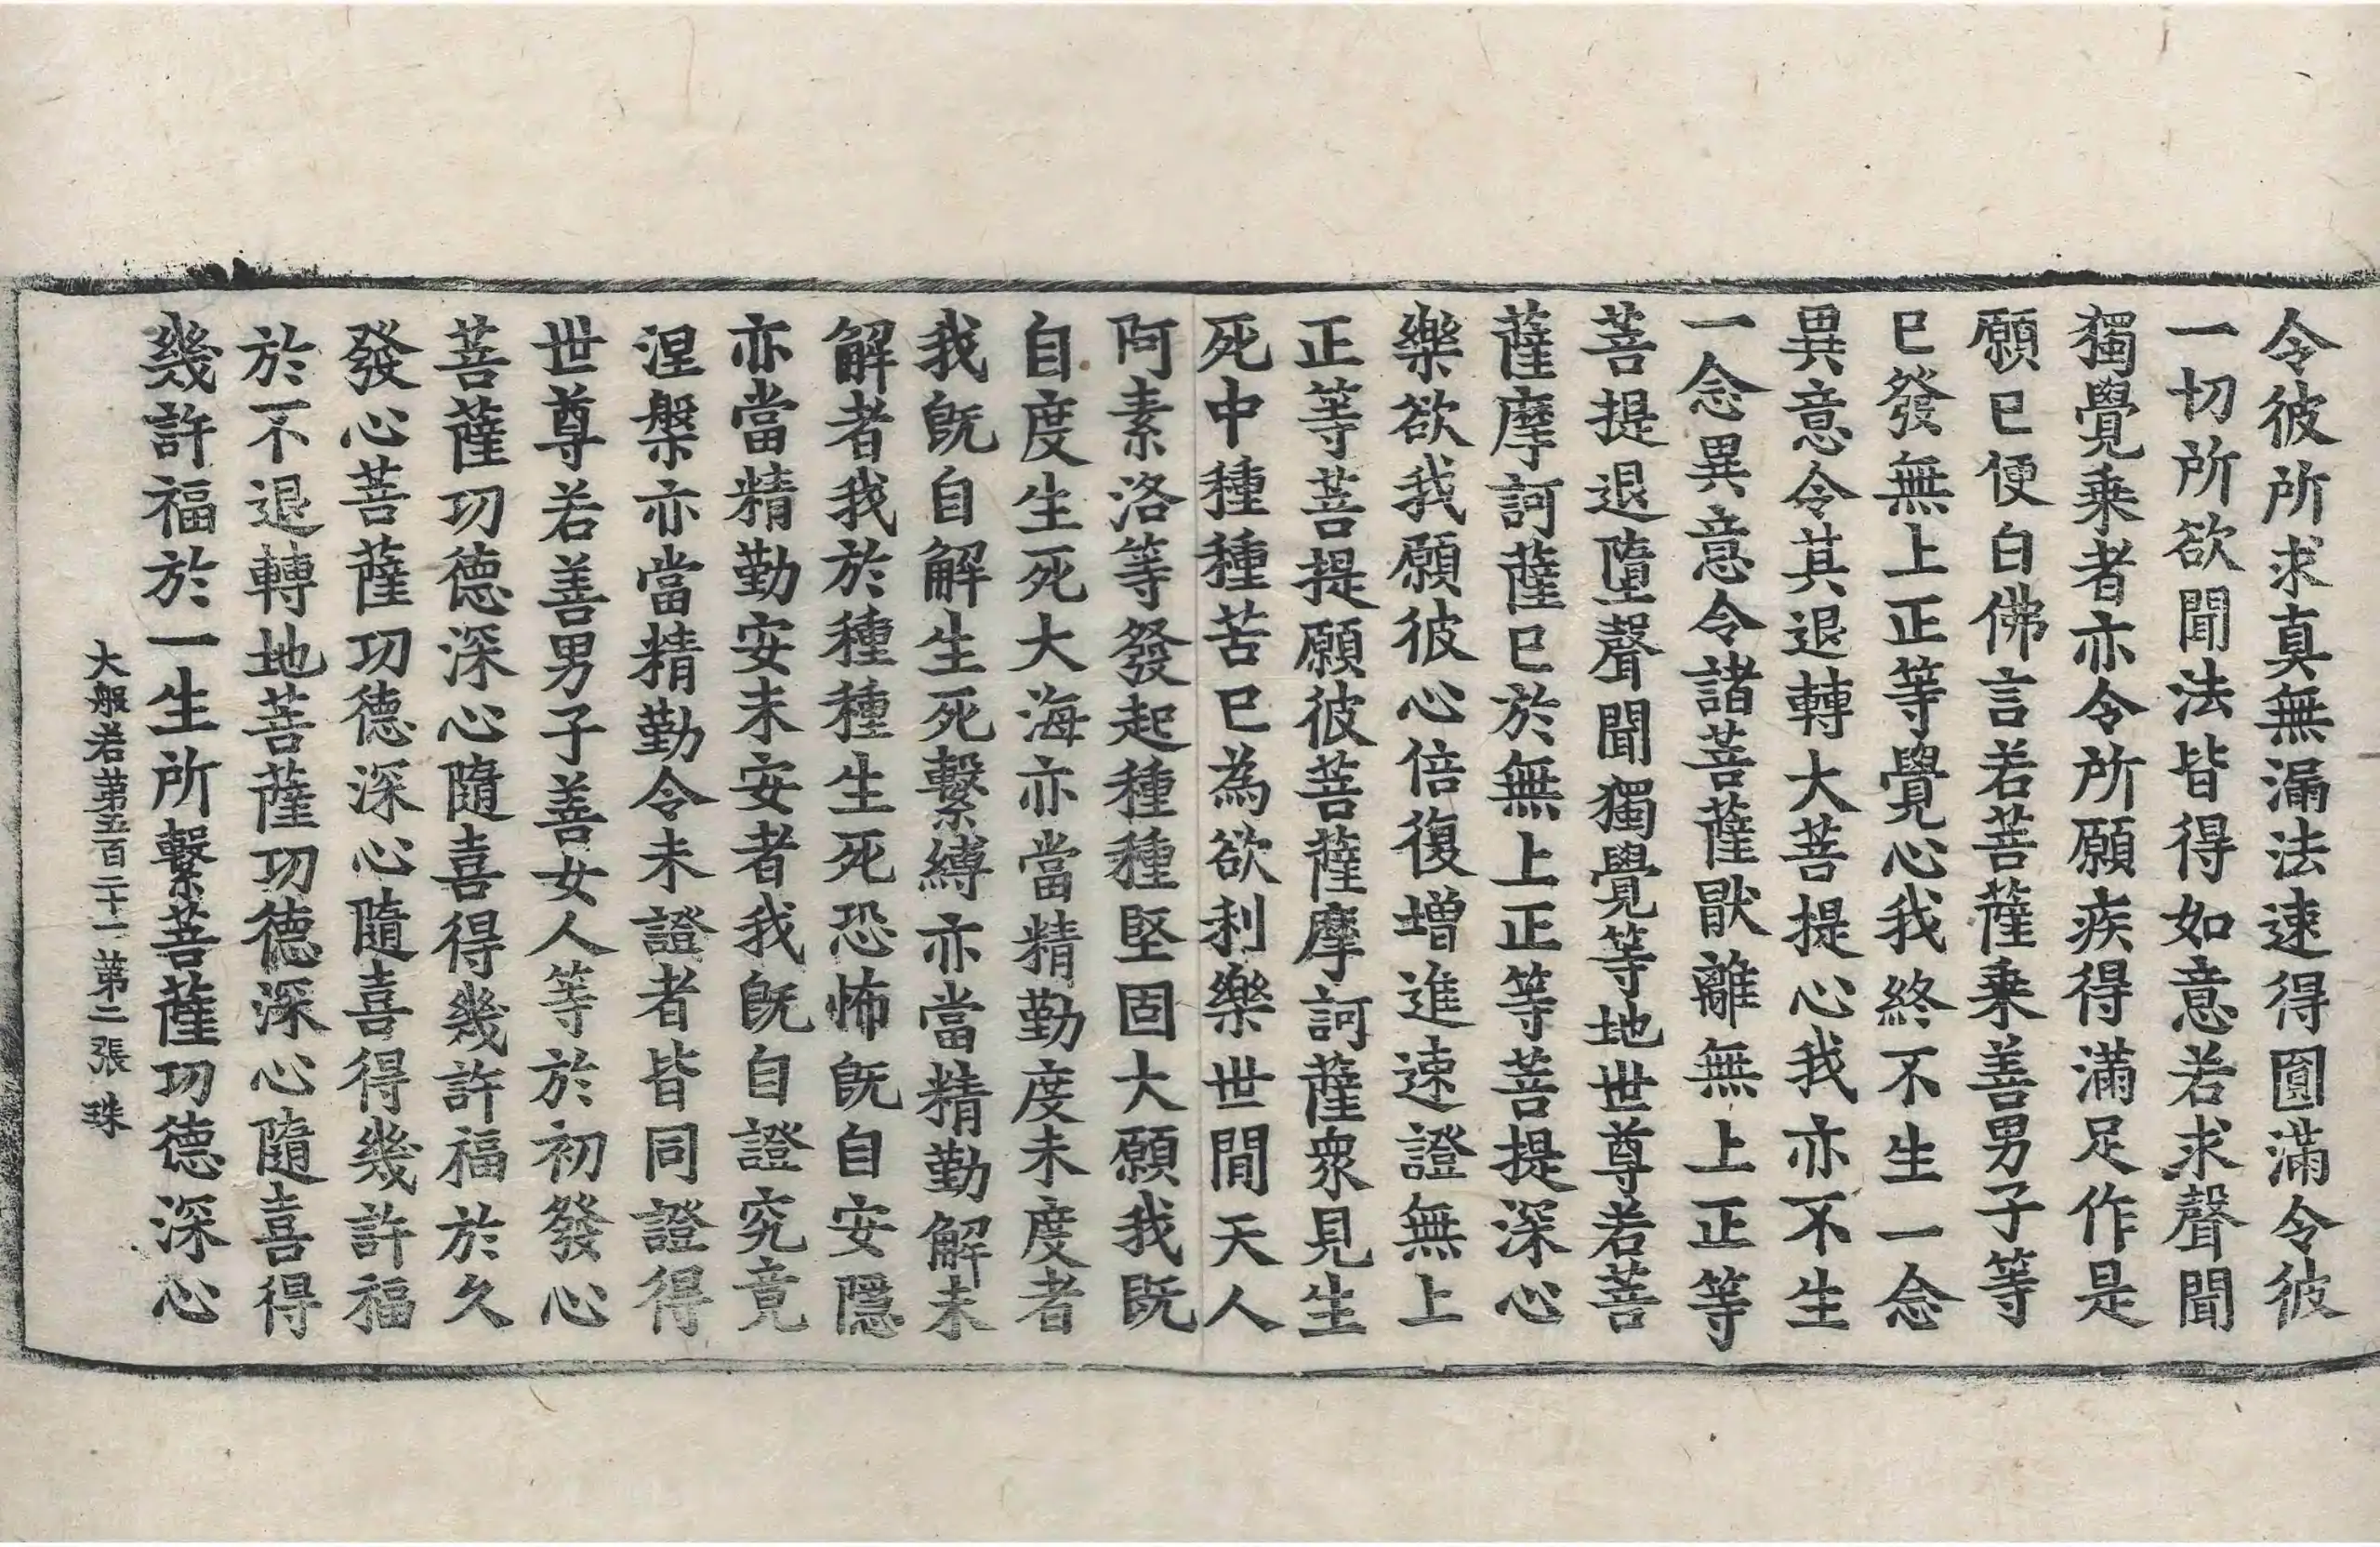 令彼所求真無漏法速得圓滿令彼
一切所欲聞法皆得如意若求聲聞
獨覺乗者亦令所願疾得滿足作是
願已便白佛言若菩薩乗善男子等
已發無上正等覺心我終不生一念
異意令其退轉大菩提心我亦不生
一念異意令諸菩薩猒離無上正等
菩提退墮聲聞獨覺等地世尊若菩
薩摩訶薩已於無上正等菩提深心
樂欲我願彼心倍復增進速證無上
正等菩提願彼菩薩摩訶薩衆見生
死中種種苦已為欲利樂世間天人
阿素洛等發起種種堅固大願我旣
自度生死大海亦當精勤度未度者
我旣自解生死繫縛亦當精勤解未
解者我於種種生死恐怖旣自安隱
亦當精勤安未安者我旣自證究竟
涅槃亦當精勤令未證者皆同證得
世尊若善男子善女人等於初發心
菩薩功德深心隨喜得幾許福於久
發心菩薩功德深心隨喜得幾許福
於不退轉地菩薩功德深心隨喜得
幾許福於一生所繫菩薩功德深心
大般若第五百二十一第二張 珠